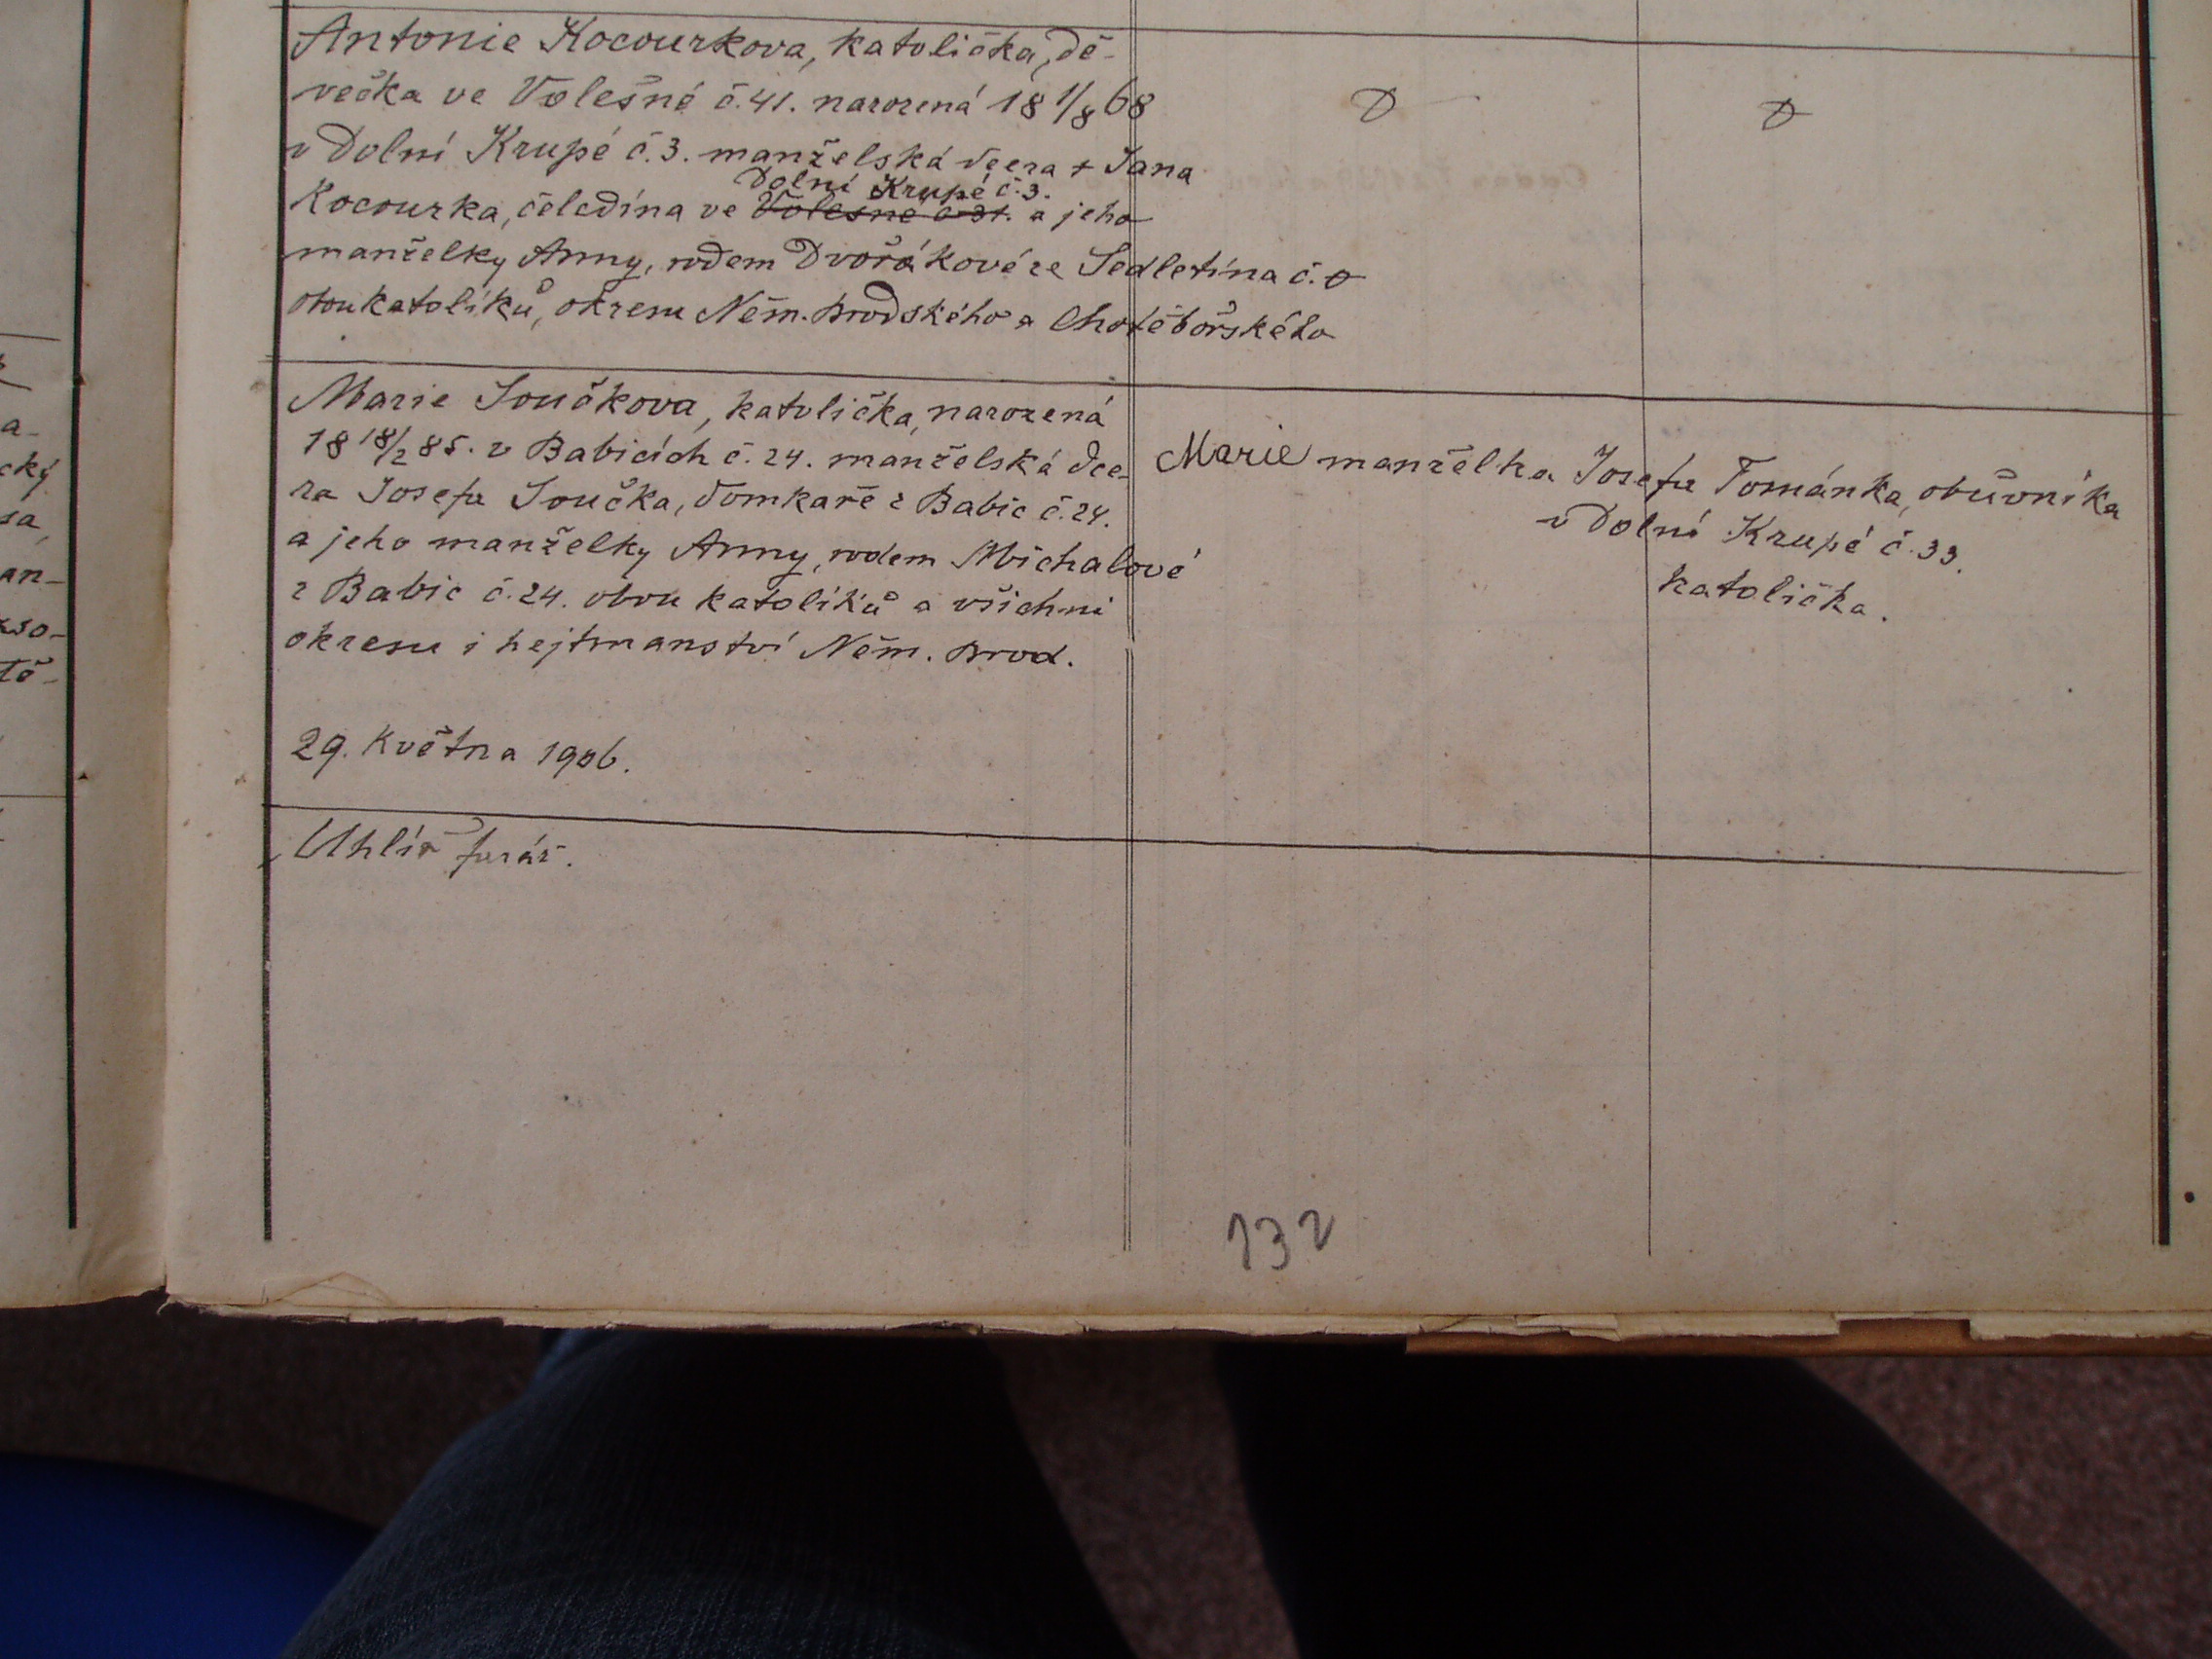 Antonie Kocourkova, katolička, dě-
večka ve Volešné č. 41. narozená 18 1/8 68
v Dolní Krupé č. 3. manželská dcera + Jana
Dolní Krupé č. 3.
Kocourka, čeledína ve Volešné č. 31. a jeho
manželky Anny, rodem Dvořákové ze Sedletína č. 0
obou katolíků, okresu Něm. Brodského a Chotěbořského
Marie Součkova, katolička, narozená
18 18/2 85. v Babicích č. 24. manželská dce-
ra Josefa Součka, domkaře z Babic č. 24.
a jeho manželky Anny, rodem Michalové
z Babic č. 24. obou katolíků a všichni
okresu i hejtmanství Něm. Brod.
29. května 1906.
Uhlíř farář.
Marie manželka Josefa Tománka, obuvníka
v Dolní Krupé č. 33.
katolička.
132
cký
sa,
an-
tě-